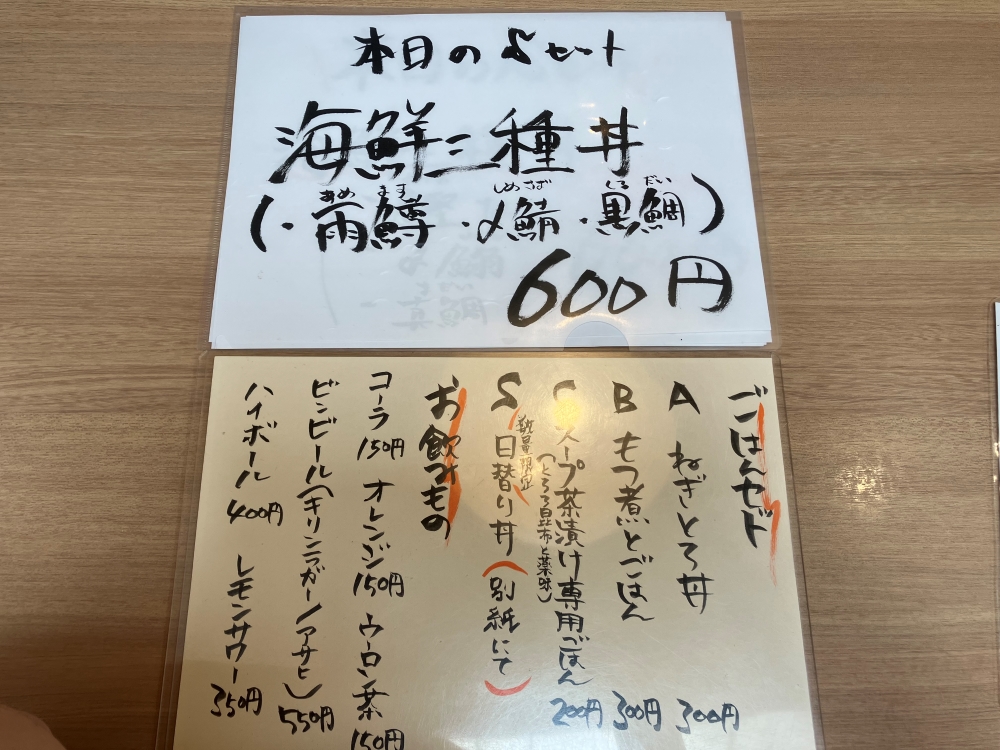 本日のSセット
海鮮三種丼
(・雨鱒・〆鯖・黒鯛)
あめ ます しめさば くろ だい
600円
ごはんセット
A ねぎとろ丼 300円
B もつ煮とごはん 300円
C スープ茶漬け専用ごはん 200円
(とろろ昆布と薬味)
S 日替り丼(別紙にて)
数量限定
お飲みもの
コーラ 150円 オレンジ 150円 ウーロン茶 150円
ビンビール(キリンラガー/アサヒ) 550円
ハイボール 400円 レモンサワー 350円